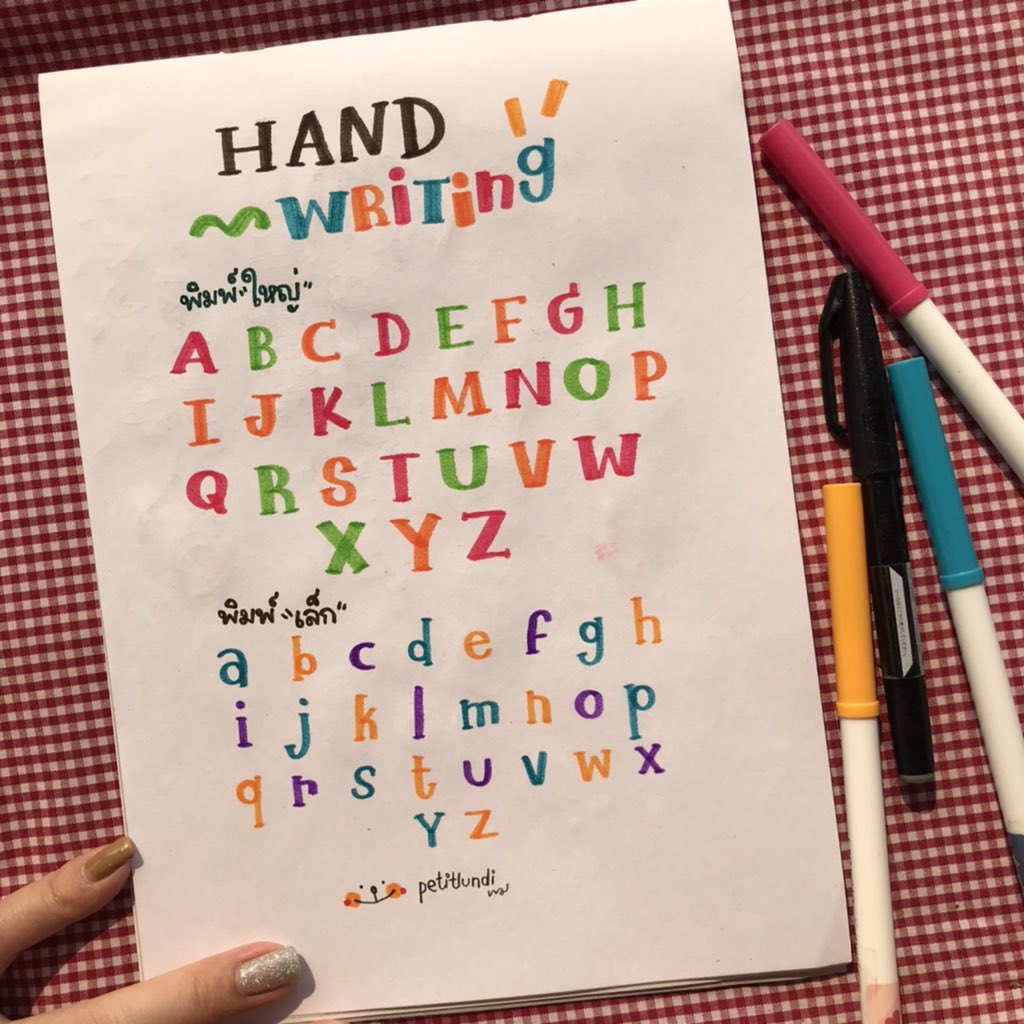 HAND
WRiTing
พิมพ์"ใหญ่"
A B C D E F G H
I J K L M N O P
Q R S T U V W
X Y Z
พิมพ์"เล็ก"
a b c d e f g h
i j k l m n o p
q r s t u v w x
y z
petitlundi